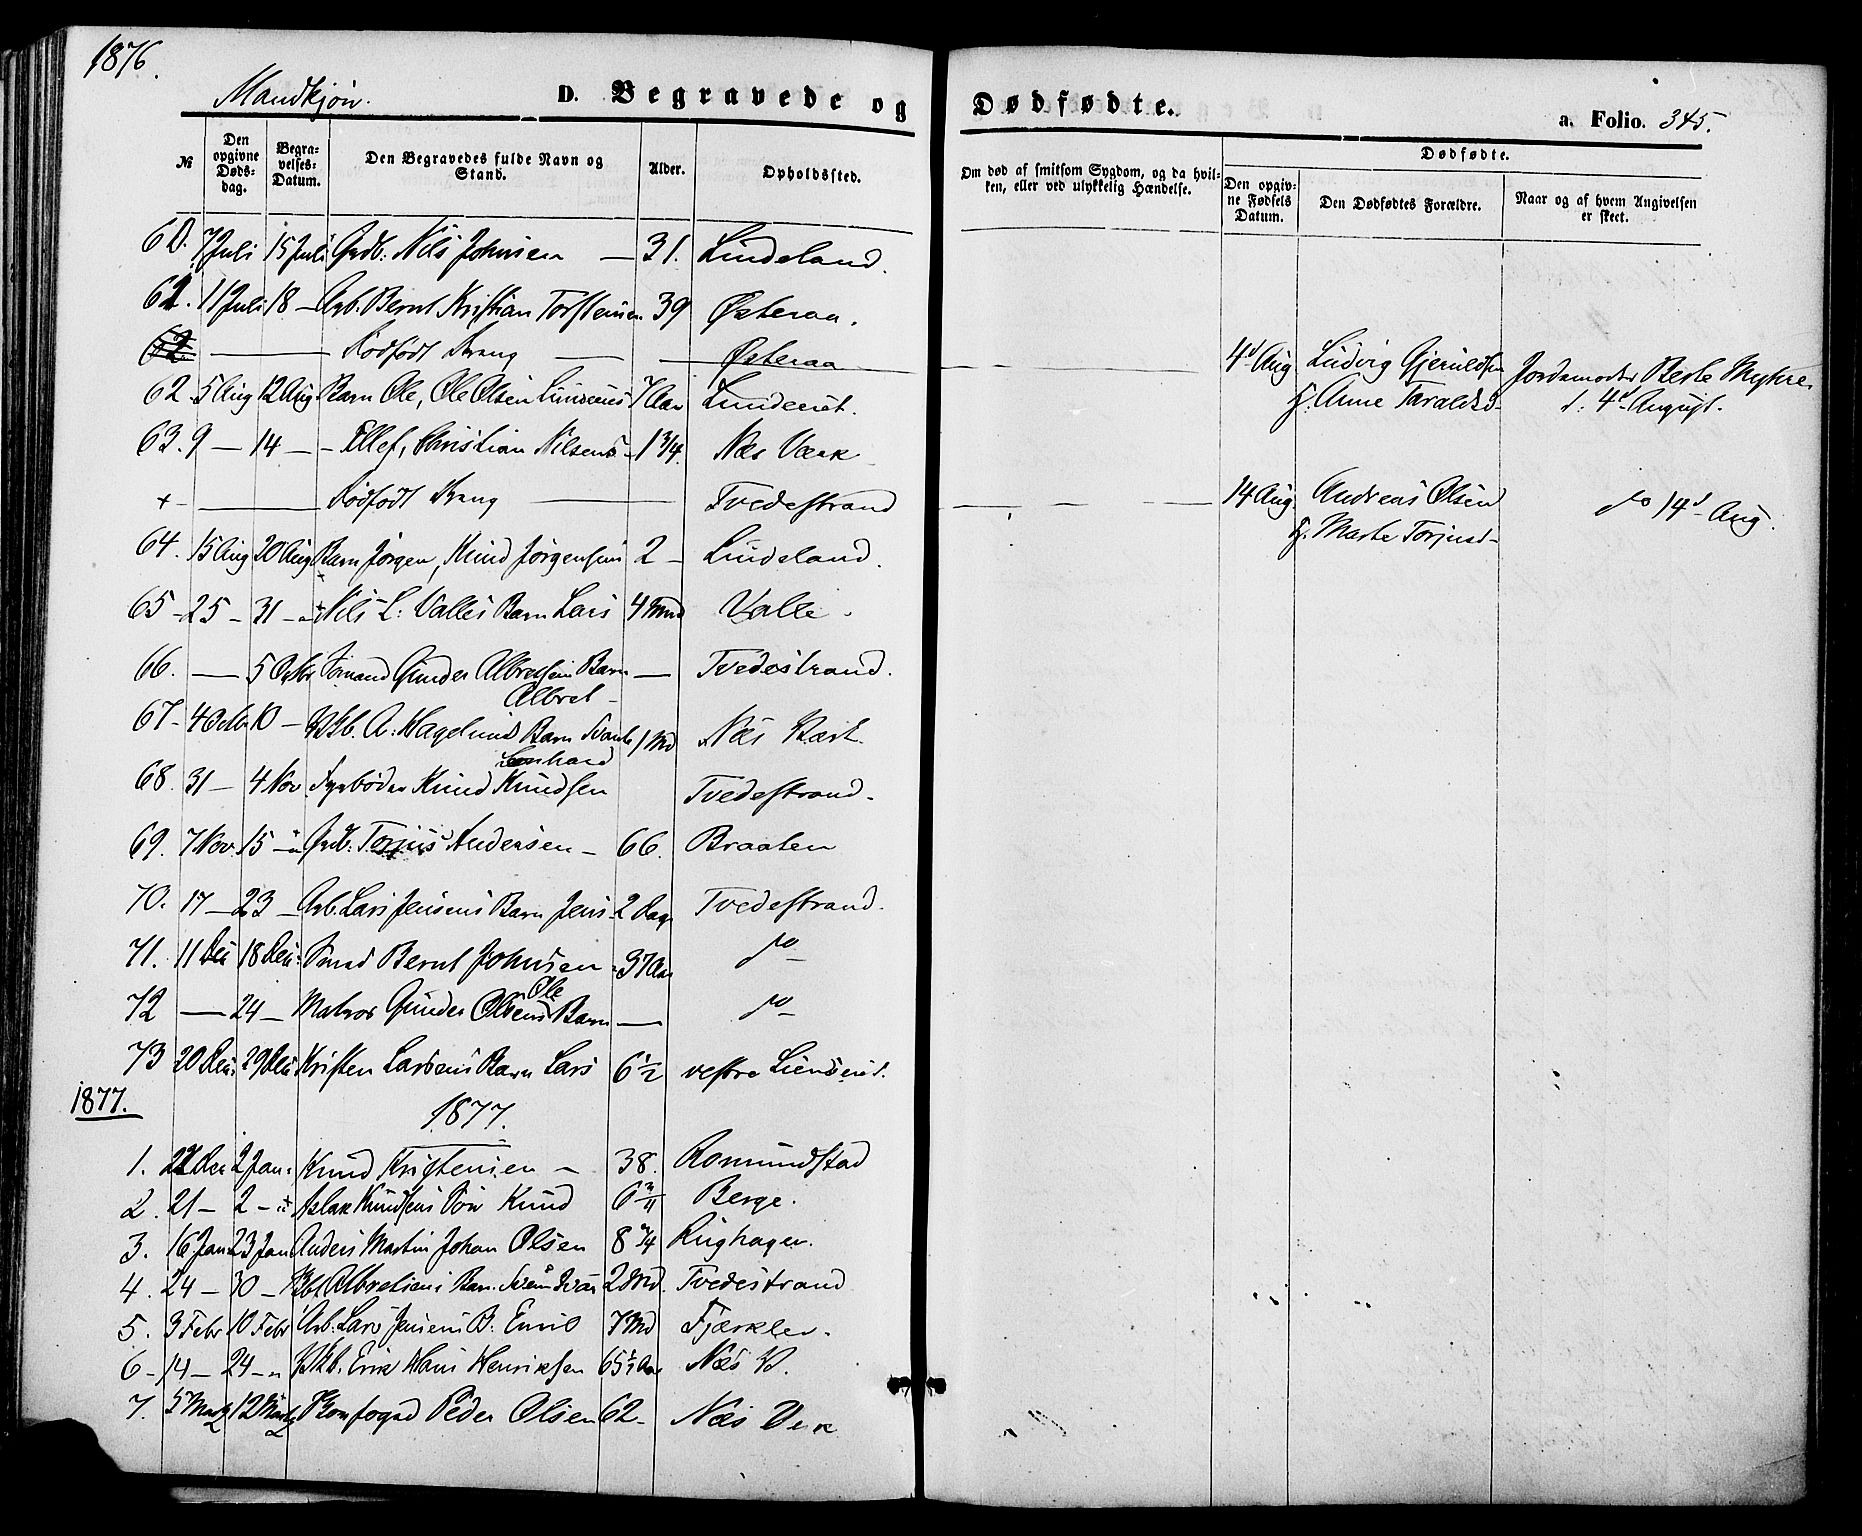 1876.
Mandkjøn.
D. Begravede og Dødfødte.
a. Folio. 345.
№ Den opgivne Døds-dag. Begra-velses-Datum. Den Begravedes fulde Navn og Stand. Alder. Opholdssted. Om død af smitsom Sygdom, og da hvil-ken, eller ved ulykkelig Hændelse. Dødfødte. Den opgiv-ne Fødsels Datum. Den Dødfødtes Forældre. Naar og af hvem Angivelsen er skeet.
60. 7 Juli 15 Juli Nils Johnsen — 31. Lindeland.
61. 11 Juli 18 — Arb. Bernt Kristian Torstensen 39 Østeraa.
62 — Dødfødt Dreng — Østeraa — 4d Aug Ludvig Gjeruldsen Jordemoder Berte Myhre
62. 5 Aug 12 Aug Barn Ole, Ole Olsen 7 Aar g. Anne Taraldsd. d: 4d August.
63. 9 — 14 — Ellef, Christian Nilsens 1 3/4. Næs Værk
+ — Dødfødt Dreng — Tvedestrand — 14 Aug. Andreas Olsen do 14d Aug.
g. Marte Torjusd-
64. 15 Aug 20 Aug Barn Jørgen, Knud Jørgensens 2 — Lindeland.
65 — 25 — 31 — Nils L: Valles Barn Lars 4 Mnd Valle.
66. — 5 Gunder Albretsens Barn — Tvedestrand.
Albret —
67 — 4 Octbr 10 — A. Hagelunds Barn 1 Md Næs Værk.
68. 31 — 4 Nov Fyrbøder Knud Knudsen Tvedestrand.
69. 7 Nov. 15 — Torjus Andersen — 66. Braaten
70. 17 — 23 — Arb. Lars Jensens Barn Jens 2 Dage Tvedestrand.
71. 11 Dec 18 Dec: Bernt Johnsen 37 Aar do —
Ole
72 — 24 — Matros Gunder Olsens Barn — do —
73 20 Dec. 29 Dec Kristen Larsens Barn Lars 6 1/2 vestre
1877.
1877.
1. 22 Dec 2 Jan. Knud Kristensen — 38. Romundstad
2. 21 — 2 — Aslak Knudsens Søn Knud Berge.
3. 16 Jan 23 Jan Anders Martin Johan Olsen 8 3/4 Rughagen.
4. 24 — 30 — Albretsens Barn 2 Md. Tvedestrand
5. 3 Febr 10 Febr Arb. Lars Jensens B. Emil 7 Md Fjærkler.
6 — 14 — 24 — Erik Hans Henriksen 65 1/2 Aar Næs V.
7. 5 Martz 12 Martz Peder Olsen 62 — Næs Verk